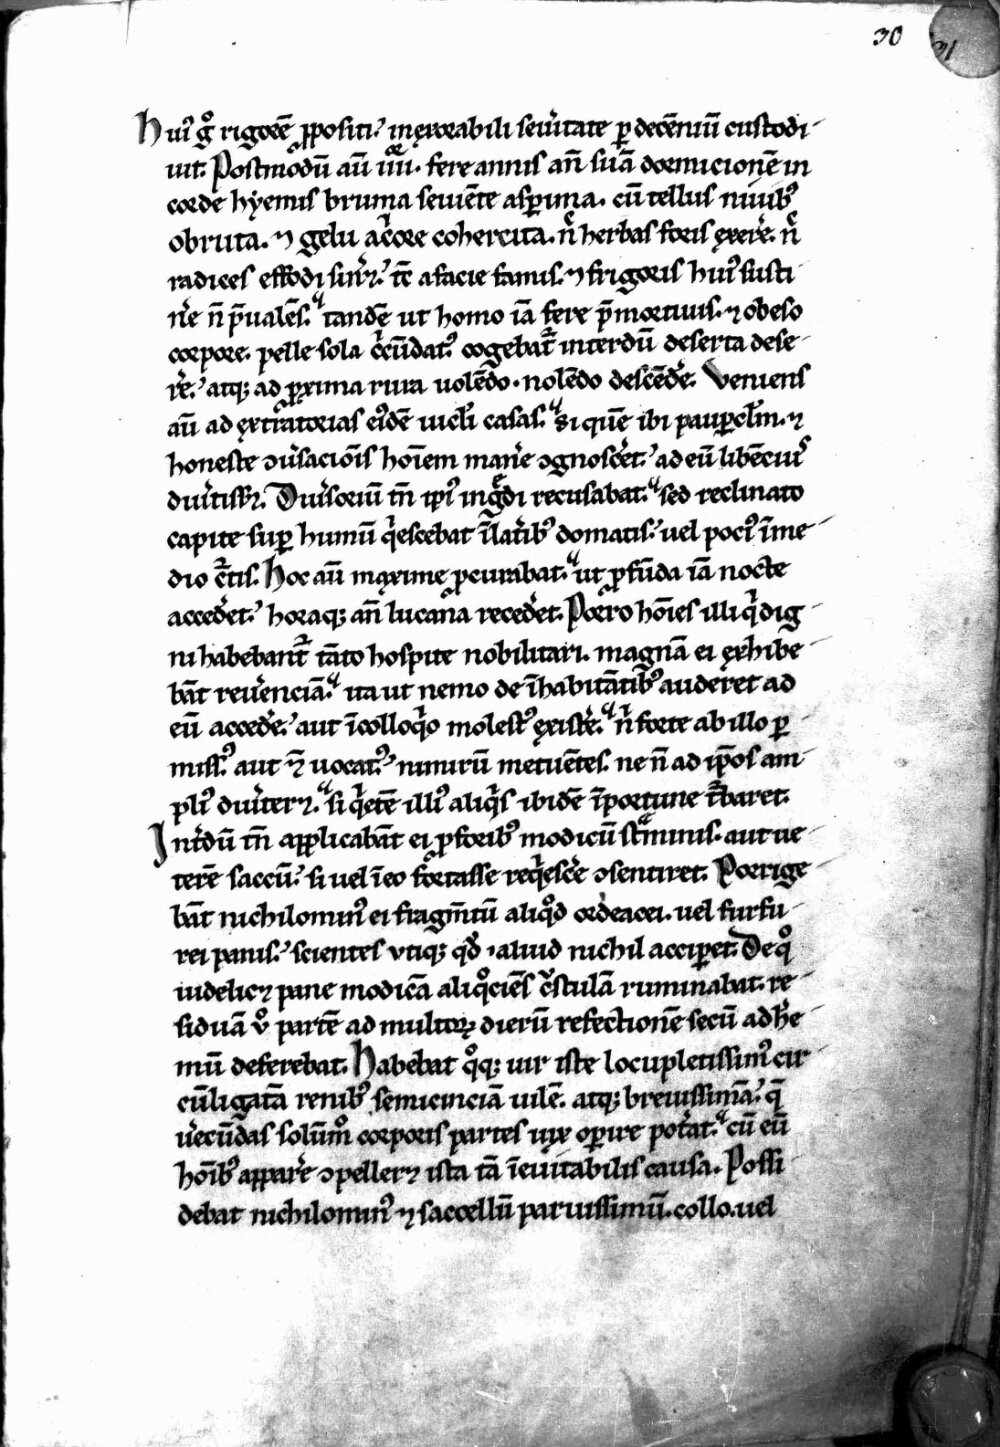 30 31
Huiꝰ gͦ rigorē ꝓpositi. inexorabili seu̾itate ꝑ decēniū custodi
uit. Postmodū aū iiii. fere annis an̄ suā dormicionē in
corde hyemis bruma seuiēte asꝑima. cū tellus niuibꝫ
obruta. ⁊ gelu ac̾ore cohercita. n̄ herbas foris exere̾. n̄
radices effodi sin̾et. tc̄ a facie famis. ⁊ frigoris huiꝰ susti
ne̾ n̄ p̄ualēs. tandē ut homo iā fere p̄mortuus. ⁊ obeso
corpore. pelle sola cͥcūdatꝰ. cogebat᷑ interdū deserta dese
re̾. atqꝫ ad ꝓxima rura uolēdo. nolēdo descēde̾. Veniens
aū ad extͣ atorias eiꝰdē uiculi casas. si quē ibi pauꝑcl̄m. ⁊
honeste ꝯu̾sacionis hoīem mane̾ ꝯgnosce̾t. ad eū libēciuꝰ
diu̾tiss᷑. Diu̾soriū tn̄ ipiꝰ ingͤdi recusabat. sed reclinato
capite suꝑ humū qͥescebat ī lat̾ibꝫ domatis. uel pociꝰ ī me
dio c̾tis. Hoc aū maxime ꝓcurabat. ut ꝓfūda iā nocte
accede̾t. horaqꝫ an̄ lucana recede̾t. Porro hoīes illi qͥ dig
ni habebant᷑ tāto hospite nobilitari. magnā ei exhibe
bāt reu̾enciā. ita ut nemo de īhabitātibꝫ auderet ad
eū accede̾. aut ī colloqͥo molestꝰ existe̾. nͥ forte ab illo ꝑ
missꝰ. aut ⁊ uocatꝰ. nimirū metuētes. ne n̄ ad ip̄os am
pliꝰ diu̾teret. si qͥetē illiꝰ aliqͥs ibidē īportune t᷑baret.
Int̾dū tn̄ applicabāt ei ꝓ foribꝫ modicū stͣminis. aut ue
terē saccū. si uel ī eo fortasse reqͥesce̾ ꝯsentiret. Porrige
bāt nichilominꝰ ei fragm̄tū aliqͦd ordeacei. uel furfu
rei panis. scientes vtiqꝫ qd̄ aliud nichil acciꝑet. De qͦ
uidelicꝫ pane modicā aliqͦciēs cͥstulā ruminabat. re
siduā vͦ partē ad multoꝝ dierū refectionē secū ad he̾
mū deferebat. Habebat qͦqꝫ uir iste locupletissimꝰ cir
cūligatā renibꝫ semicinciā uilē. atqꝫ breuissimā. qͣ
ue̾cūdas solūmͦ corporis partes uix oꝑire pot̾at. cū eū
hoībꝫ appare̾ ꝯpelleret ista tā īeuitabilis causa. Possi
debat nichilominꝰ ⁊ saccellū paruissimū. collo. uel